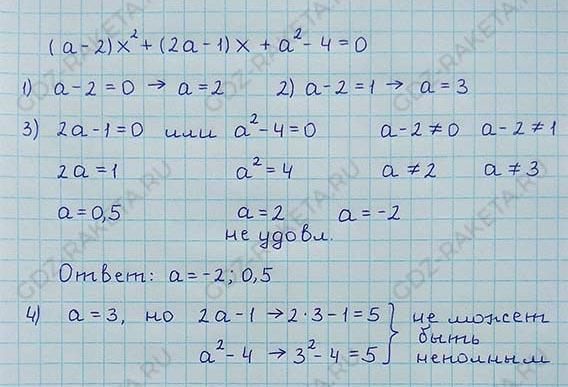 (a-2)x²+(2a-1)x+a²-4=0
1) a-2=0 → a=2 2) a-2=1 → a=3
3) 2a-1=0 или a²-4=0 a-2≠0 a-2≠1
2a=1 a²=4 a≠2 a≠3
a=0,5 a=2 a=-2
не удовл.
Ответ: a=-2; 0,5
4) a=3, но 2a-1 → 2·3-1=5 } не может
быть
a²-4 → 3²-4=5 неполным
GDZ-RAKETA.RU